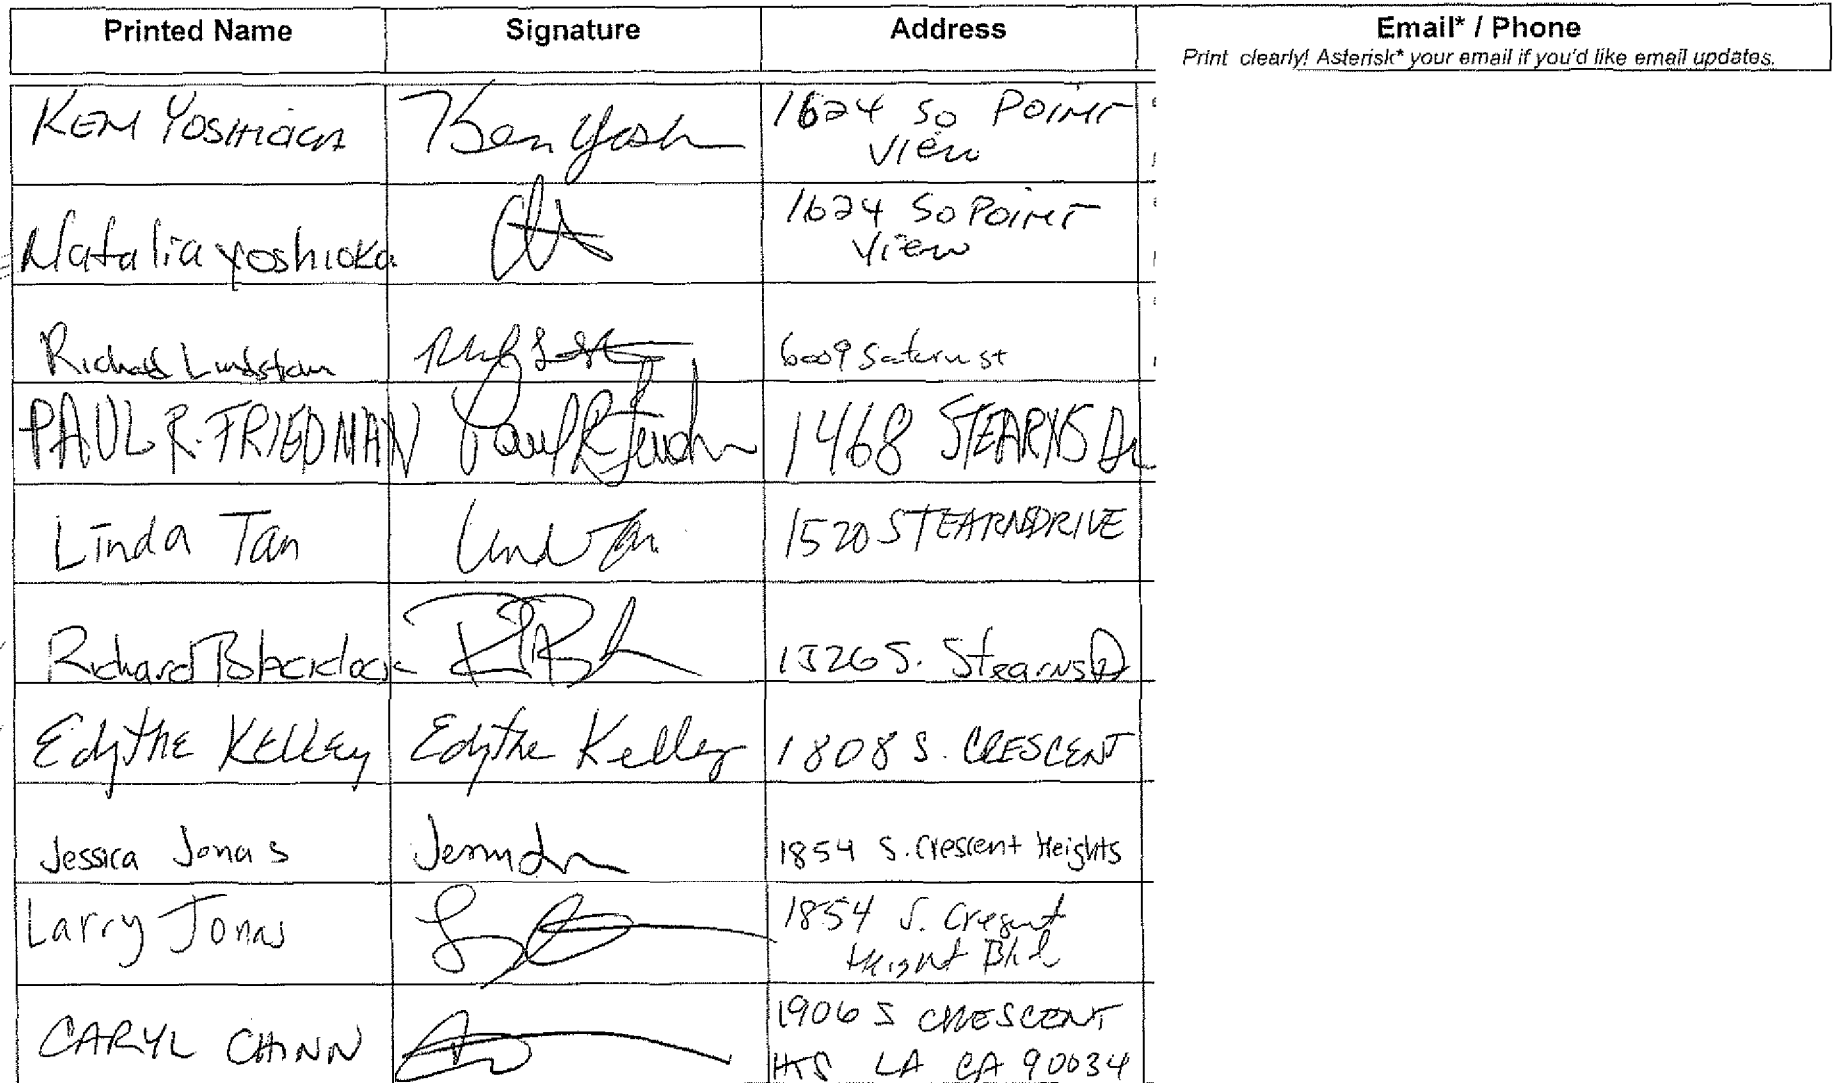 Printed Name Signature Address Email* / Phone
Print clearly! Asterisk* your email if you'd like email updates.
KEN YOSHIOKA Ken Yosh 1624 So POINT
View
Natalia Yoshioka 1624 So POINT
View
Richard Lindstam 6009 Saturn st
PAUL R. FRIEDMAN Paul R. 1468 STEARNS Dr
Linda Tan Linda Tan 1520 STEARNS DRIVE
Richard Blacklock 1326 S. Stearns Dr
Edythe KELLEY Edythe Kelley 1808 S. CRESCENT
Jessica Jonas 1854 S. Crescent Heights
Larry Jonas 1854 S. Cresent
Height Blvd
CARYL CHINN 1906 S CRESCENT
HTS LA CA 90034